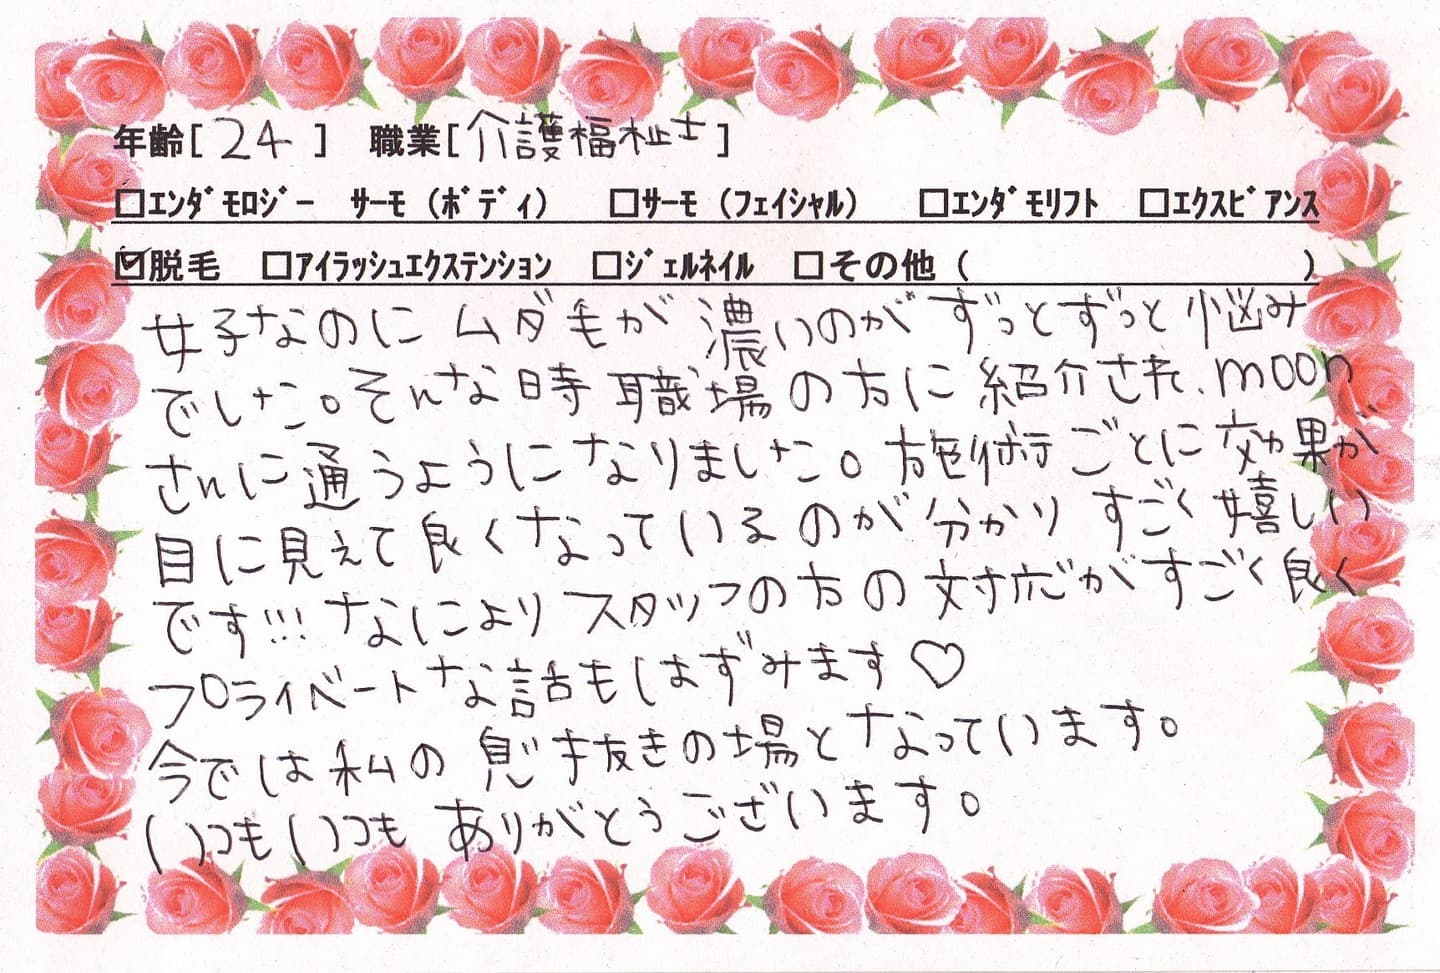 年齢[ 24 ] 職業[ 介護福祉士 ]
□エンダモロジー サーモ(ボディ) □サーモ(フェイシャル) □エンダモリフト □エクスビアンス
☑脱毛 □アイラッシュエクステンション □ジェルネイル □その他( )
女子なのに ムダ毛が 濃いのが ずっとずっと 悩み
でした。そんな時 職場の方に 紹介され、moon
さんに通うようになりました。施術ごとに効果が
目に見えて良くなっているのが分かり すごく嬉しい
です!!! なにより スタッフの方の 対応がすごく良く
プライベートな話もはずみます♡
今では私の 息抜きの場となっています。
いつもいつも ありがとうございます。